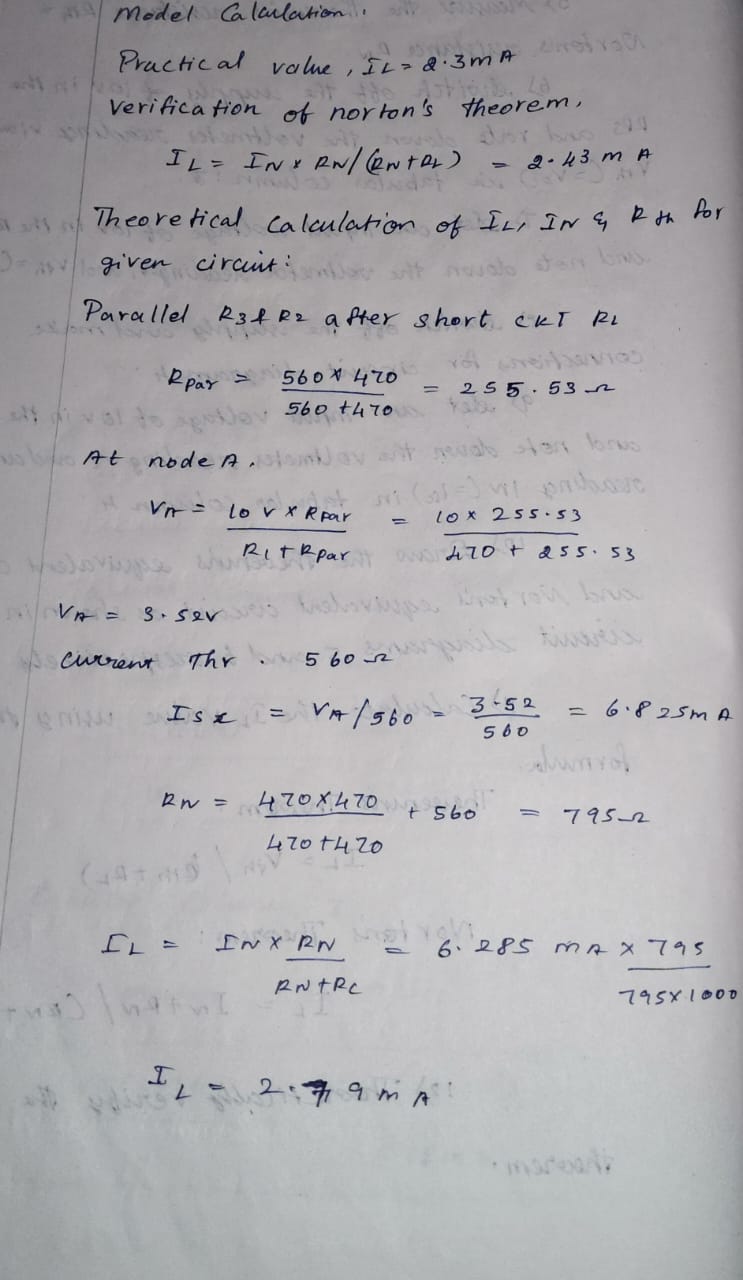 Model Calculation.
Practical value, IL = 2.3mA
Verification of norton's theorem,
IL = IN x RN/(RN+RL) = 2.43 mA
Theoretical Calculation of IL, IN & Rth for
given circuit:
Parallel R3 & R2 after short CKT RL
Rpar = 560 x 470 / 560 + 470 = 255.53 Ω
At node A,
VA = 10 V x Rpar / R1 + Rpar = 10 x 255.53 / 470 + 255.53
VA = 3.52V
Current Thr. 560 Ω
Isc = VA/560 = 3.52 / 560 = 6.825mA
RN = 470 X 470 / 470 + 470 + 560 = 795 Ω
IL = IN X RN / RN + RL = 6.285 mA x 795 / 795 x 1000
IL = 2.79 mA